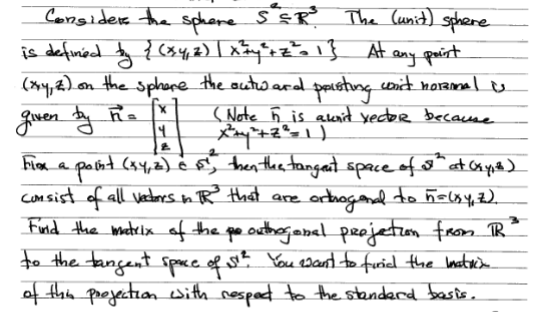 Consider the sphere S² ⊆ R³. The (unit) sphere
is defined by {(x,y,z) | x²+y²+z²=1} At any point
(x,y,z) on the sphere the outward pointing unit normal is
given by n⃗ = [x y z] (Note n⃗ is a unit vector because x²+y²+z²=1)
Fix a point (x,y,z) ∈ S², then the tangent space of S² at (x,y,z)
consist of all vectors in R³ that are orthogonal to n⃗=(x,y,z).
Find the matrix of the orthogonal projection from R³
to the tangent space of S². You want to find the matrix
of this projection with respect to the standard basis.